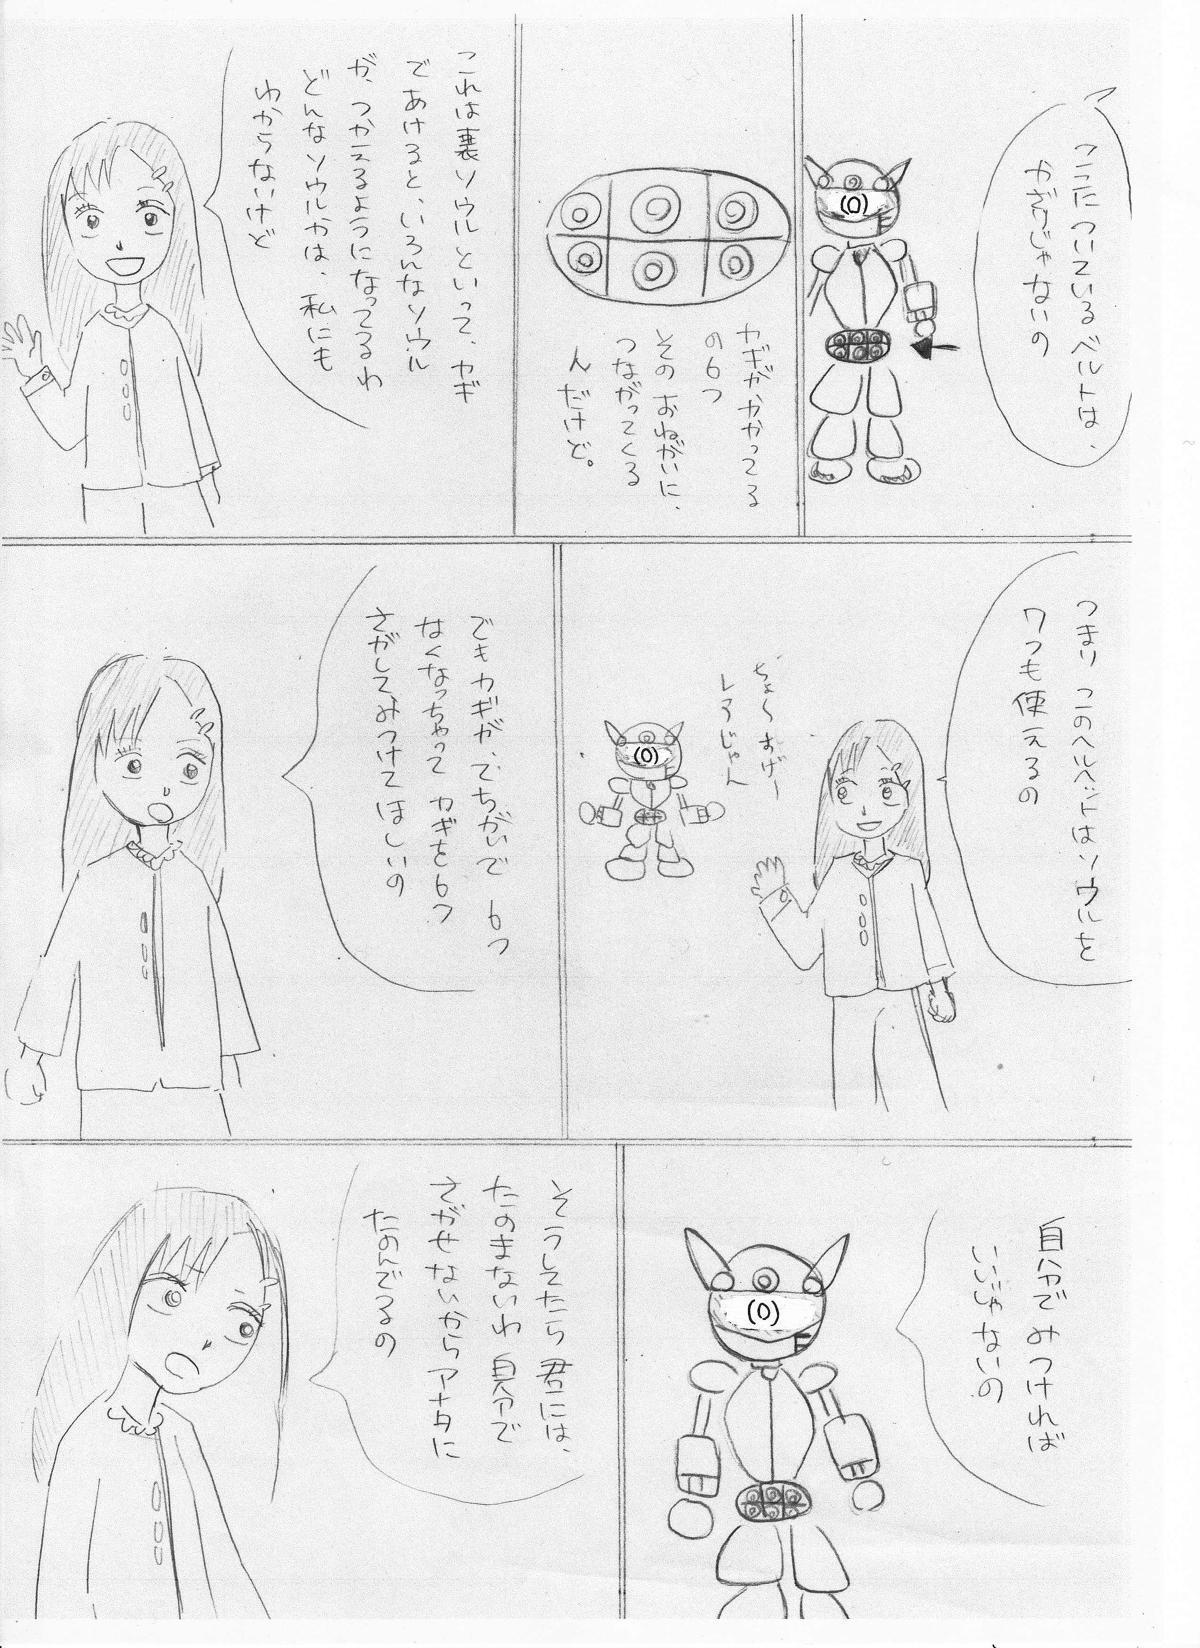 ここについているベルトは、
かざりじゃないの
カギがかかってる
の6つ
その おねがいに、
つながってくる
んだけど。
これは裏ソウルといって、カギ
であけると、いろんなソウル
が、つかえるようになってるわ
どんなソウルかは、私にも
わからないけど
つまり このヘルメットはソウルを
7つも使えるの
ちょーすげー
しろじゃん
でもカギが、てちがいで 6つ
なくなっちゃって カギを6つ
さがして、みつけてほしいの
自分でみつければ
いいじゃないの
そうしてたら 君には、
たのまないわ 自分で
さがせないからアナタに
たのんでるの